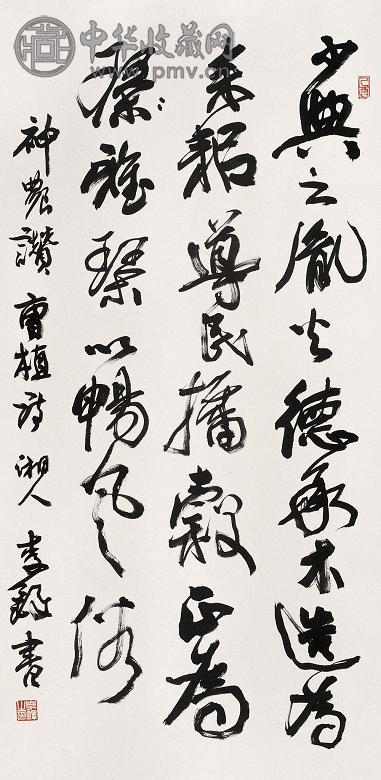 中华收藏网
www.pmv.cn
少典之胤火德承木造為
耒耜導民播穀正為
雅琴以暢風俗
神農讚 曹植詩 湘人 李鐸書